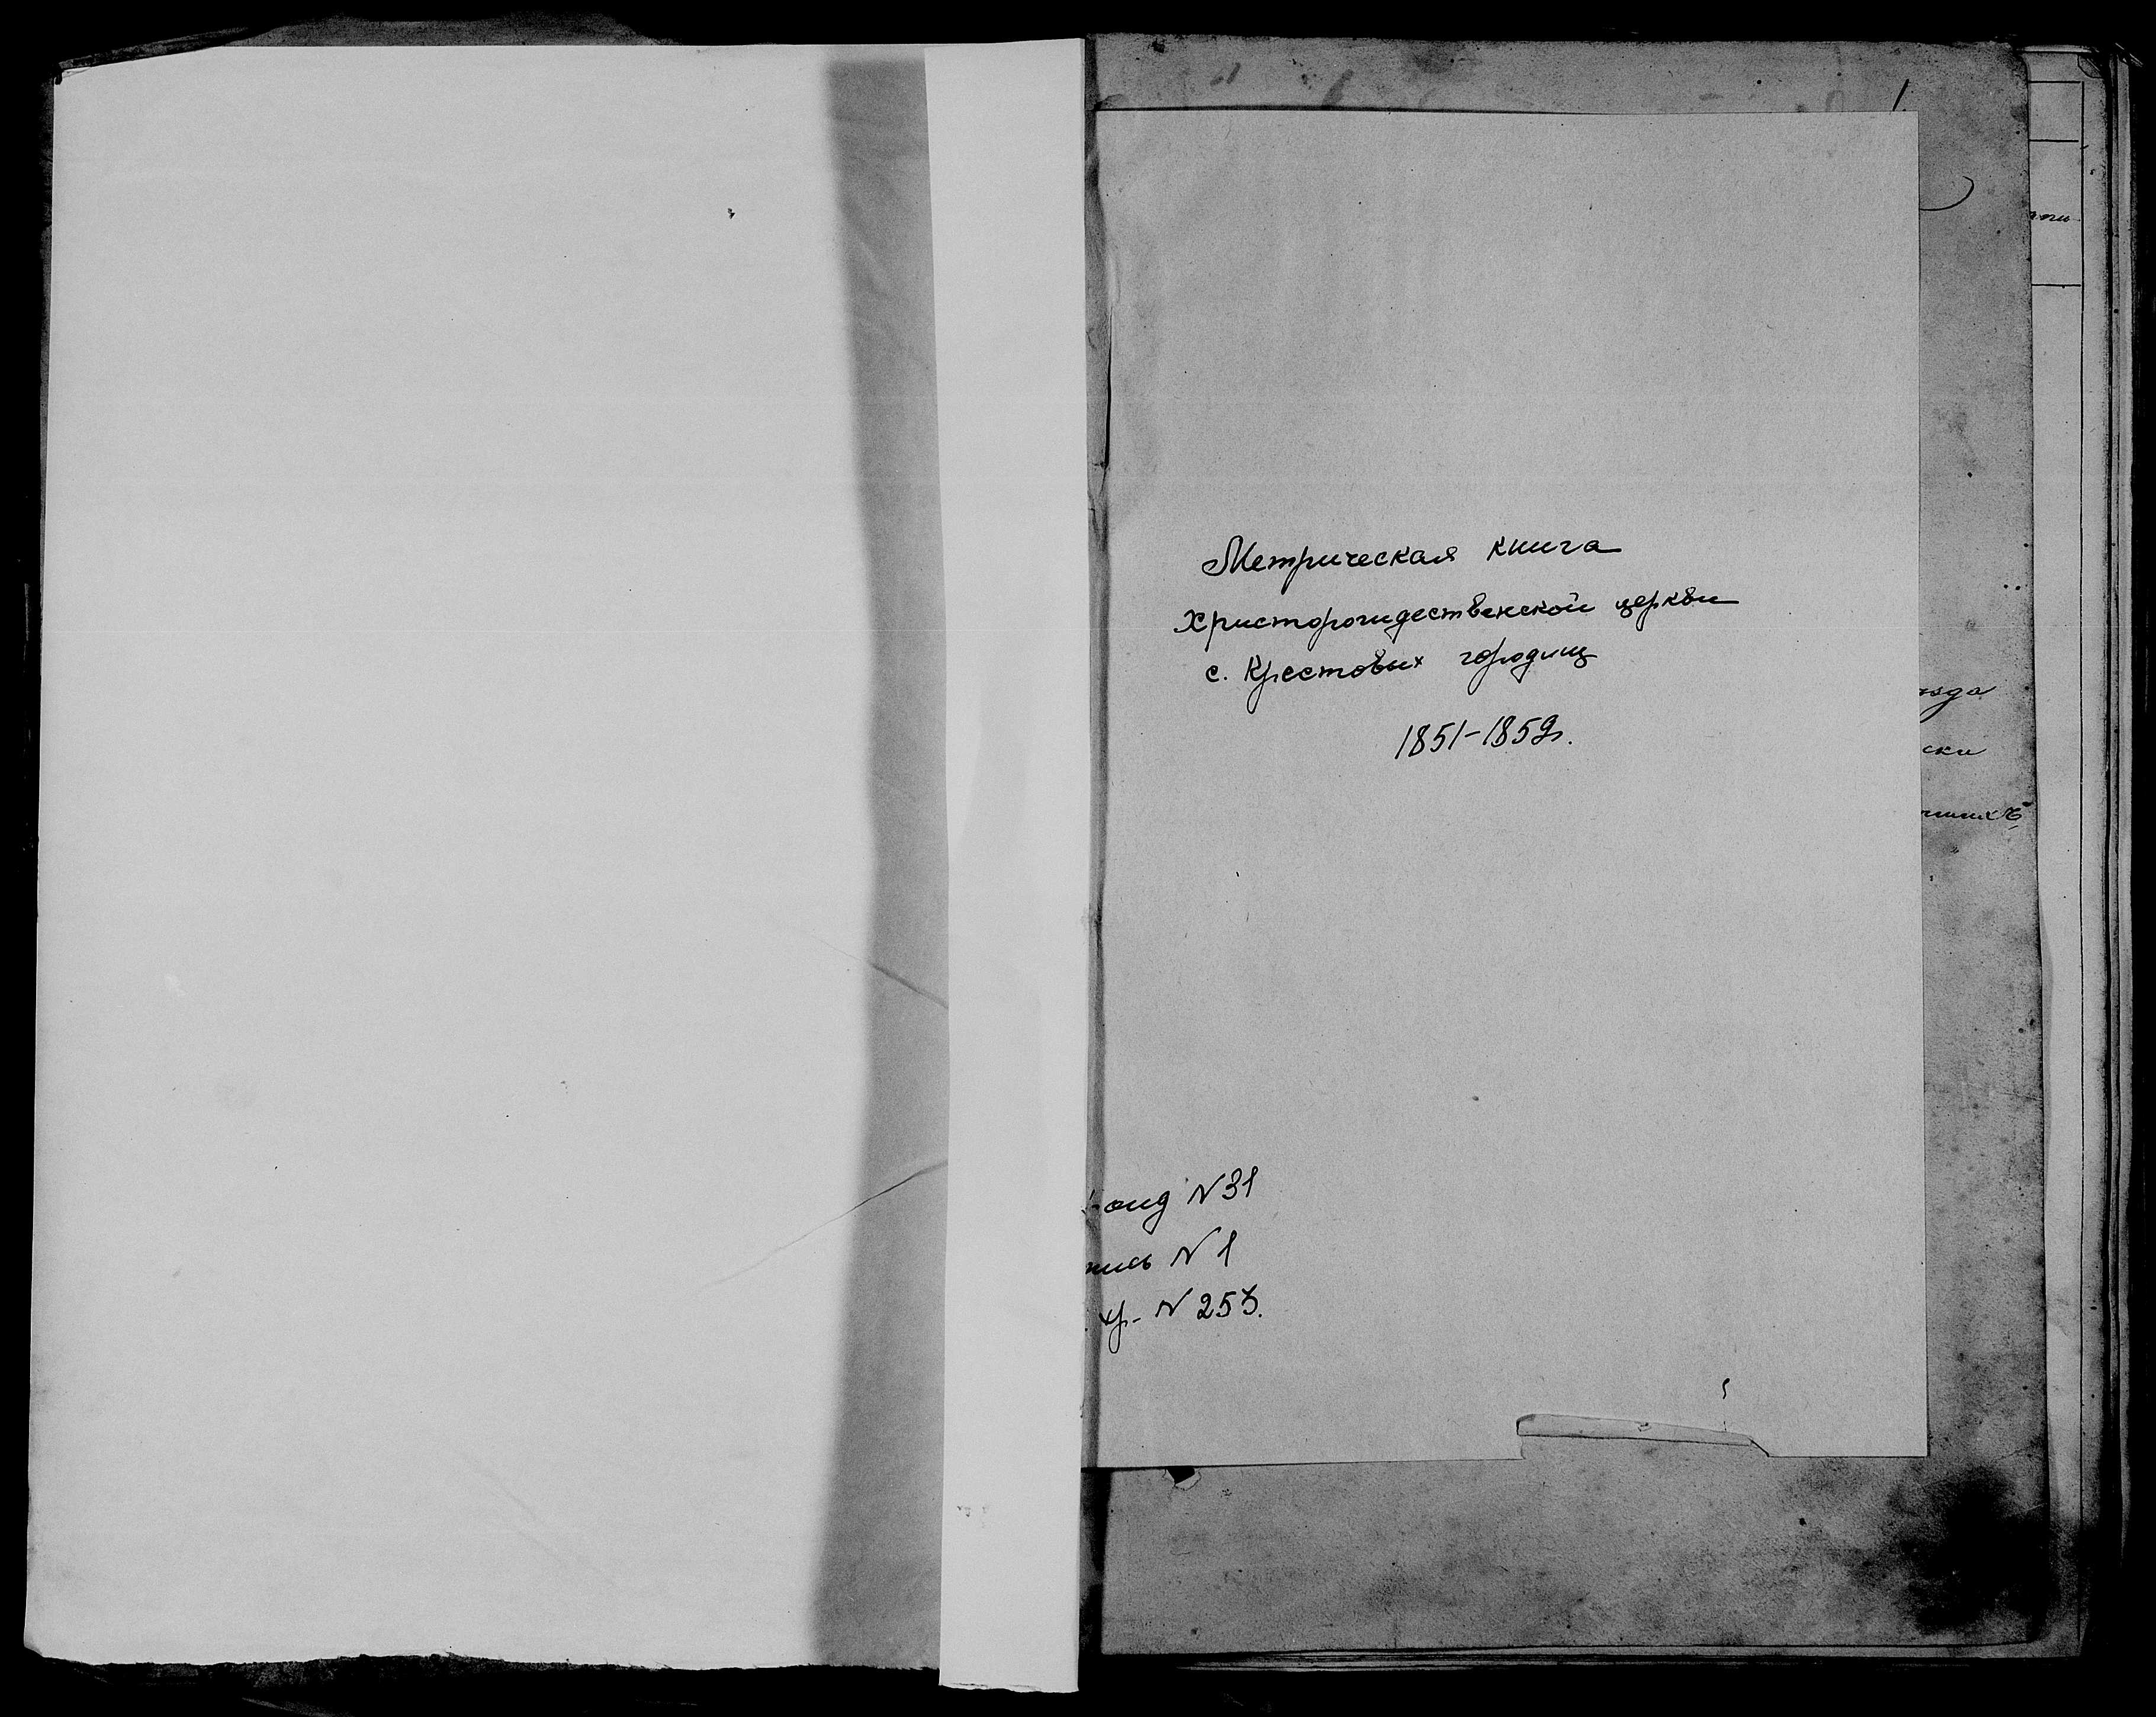 1
Метрическая книга
Христорождественской церкви
с. Крестовых городищ
1851-1859г.
онд N 31
пись N 1
хр. N 253.